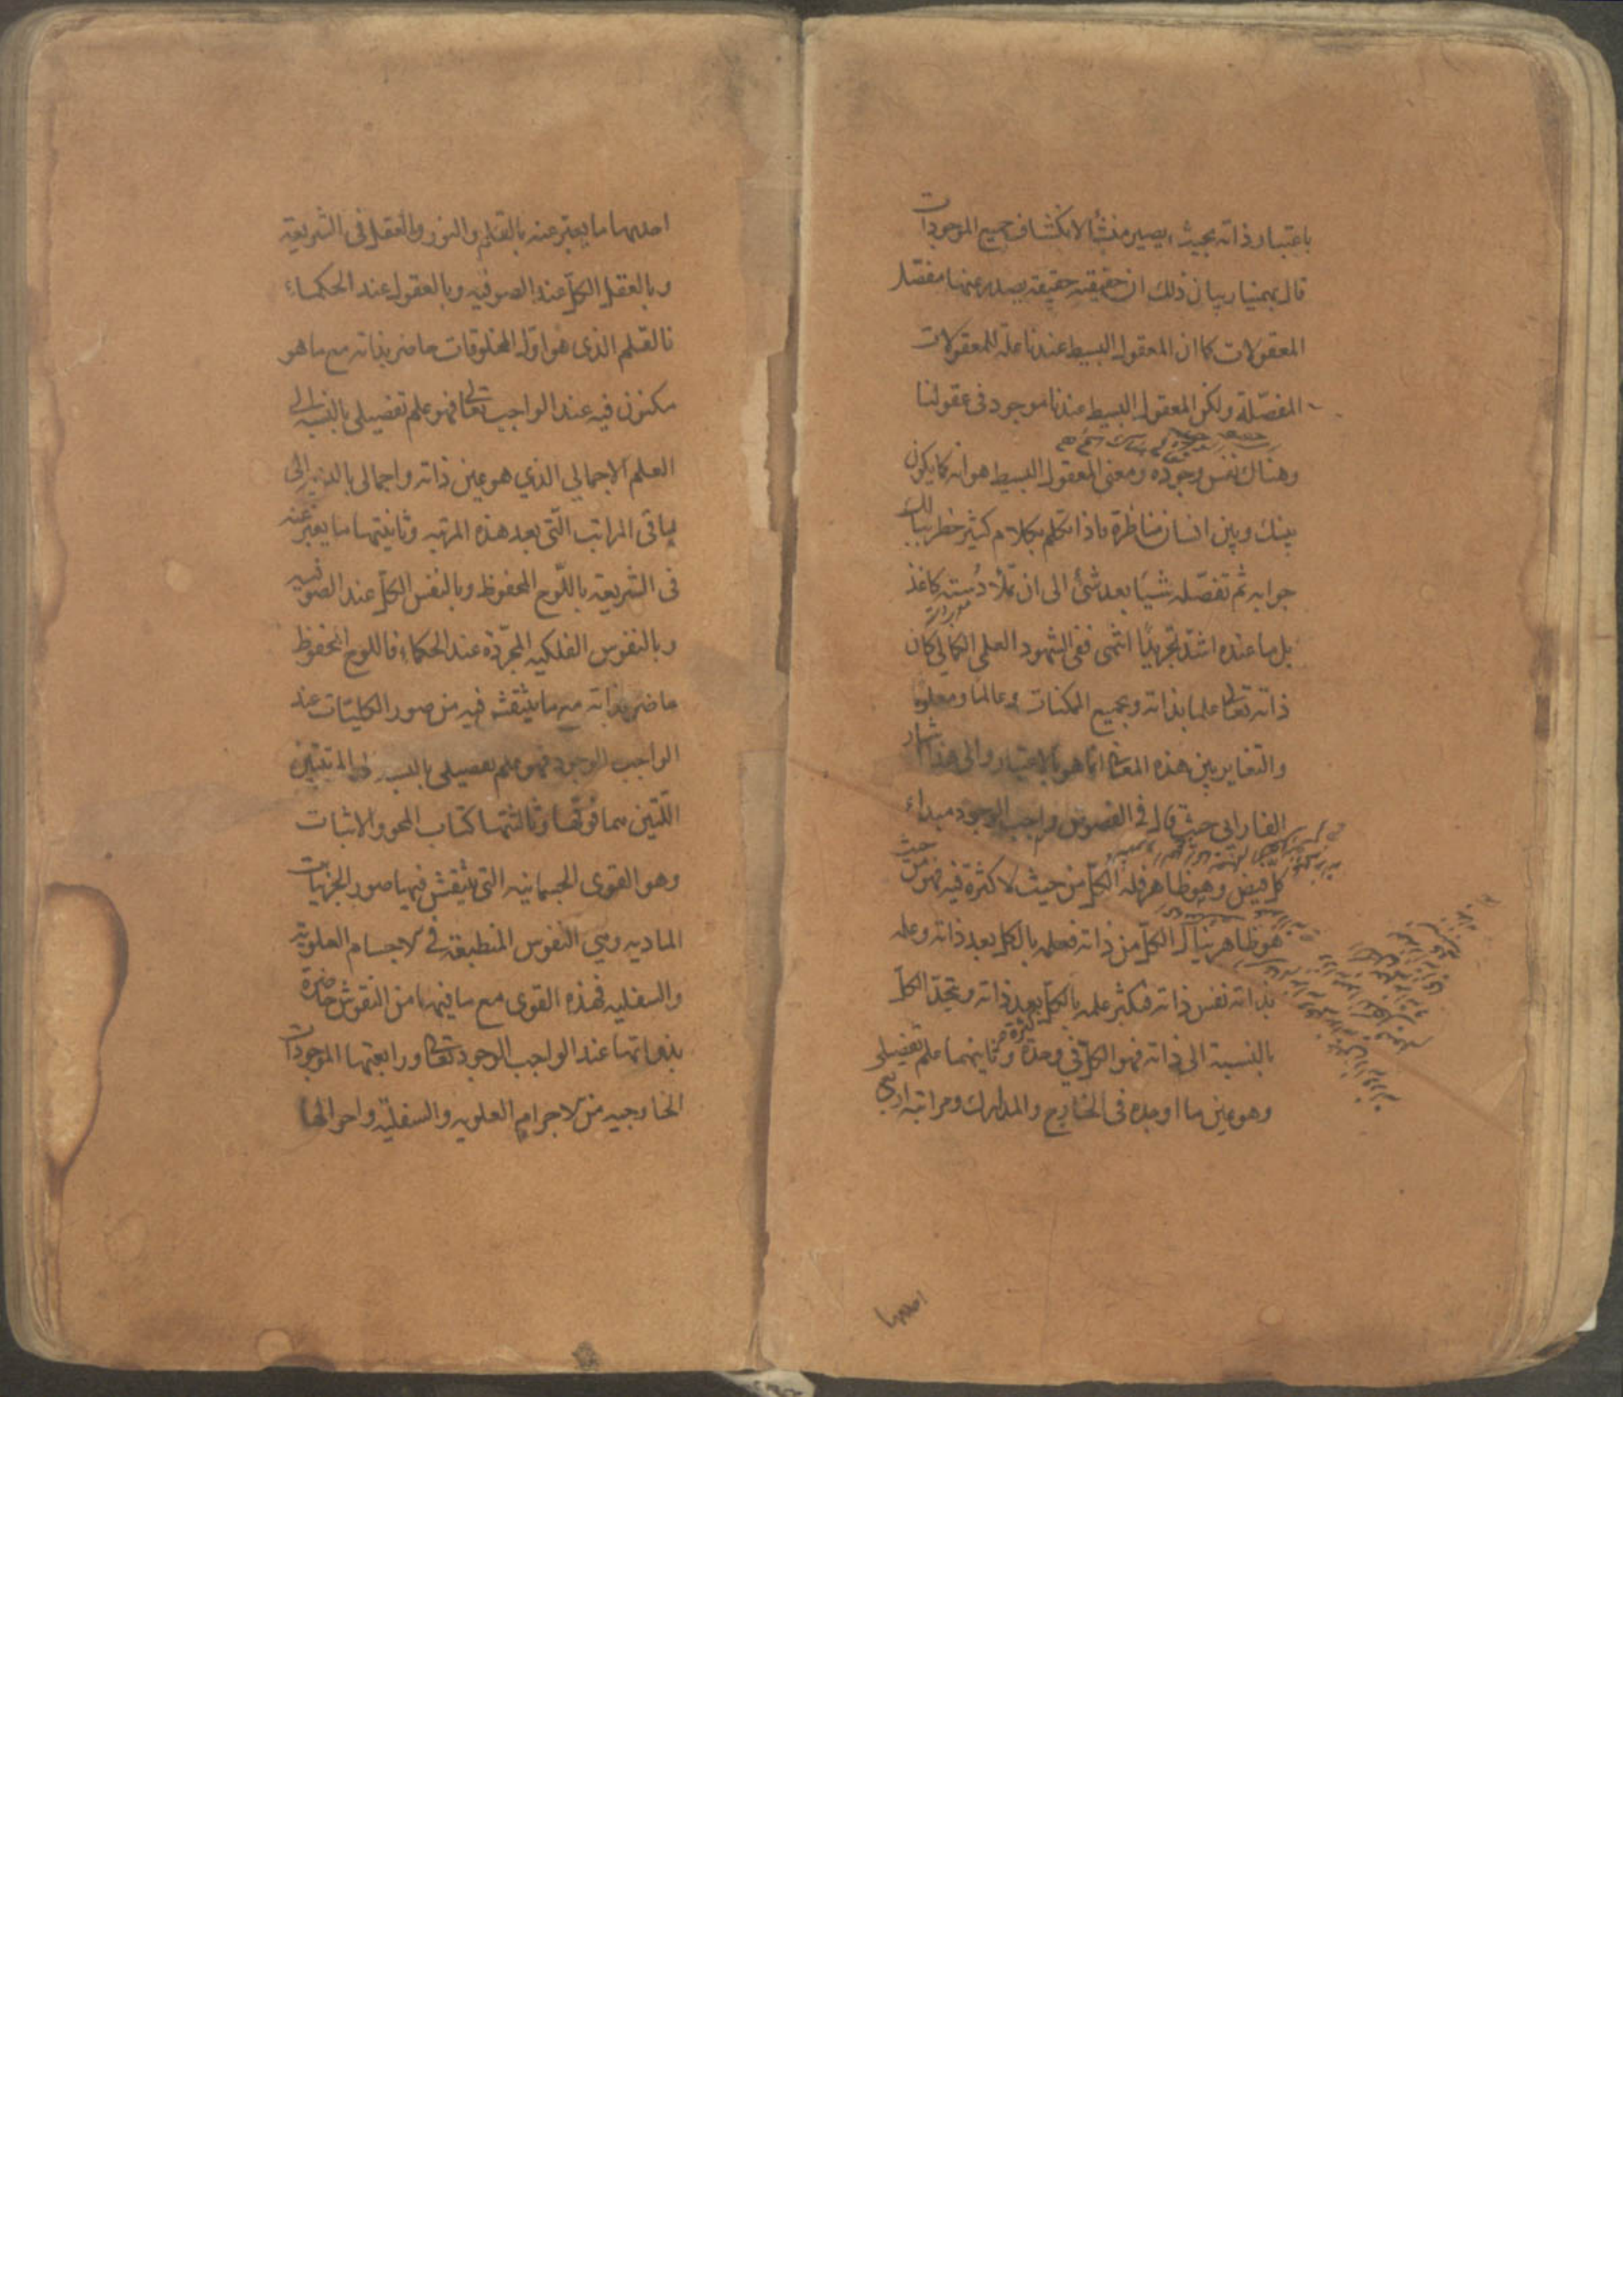 باعتبار ذاته بحيث يصير منشأ لانكشاف جميع الموجودات
قال بهمنيار بيان ذلك ان حقيقته حقيقة يصدر عنها مفصل
المعقولات كما ان المعقول البسيط عندنا علة للمعقولات
المفصلة ولكن المعقول البسيط عندنا موجود في عقولنا
وهناك نفس وجوده ومعنى المعقول البسيط هو انه كما يكون
بينك وبين انسان مناظرة فاذا تكلم بكلام كثير خطر ببالك
جوابه ثم تفصله شيئا بعد شئ الى ان تملأ دسته كاغذ
بل ما عنده اشد تجريدا انتهى ففى الشهود العلمي الكمالي كان
ذاته تعالى علما بذاته وبجميع الممكنات وعالما ومعلوما
والتغاير بين هذه المعاني انما هو بالاعتبار والى هذا اشار
الفارابي حيث قال في الفصوص واجب الوجود مبداء
كل فيض وهو ظاهر فله الكل من حيث لا كثرة فيه فهو من حيث
هو ظاهر ينال الكل من ذاته فعلمه بالكل بعد ذاته وعلمه
بذاته نفس ذاته فيكثر علمه بالكل بعد ذاته ويتحد الكل
بالنسبة الى ذاته فهو الكل في وحدة وثانيهما علم تفصيلي
وهو عين ما اوجده في الخارج والمدارك ومراتبه اربع
احديها
احديها ما يعبر عنه بالقلم والنور والعقل في الشريعة
وبالعقل الكل عند الصوفيه وبالعقول عند الحكماء
فالقلم الذى هو اول المخلوقات حاضر بذاته مع ما هو
مكنون فيه عند الواجب تعالى فهو علم تفصيلي بالنسبة الى
العلم الاجمالي الذي هو عين ذاته واجمالى بالنسبة الى
باقى المراتب التي بعد هذه المرتبه وثانيتها ما يعبر عنه
في الشريعة باللوح المحفوظ وبالنفس الكل عند الصوفيه
وبالنفوس الفلكيه المجردة عند الحكماء فاللوح المحفوظ
حاضر بذاته مع ما ينتقش فيه من صور الكليات عند
الواجب الوجود فهو علم تفصيلي بالنسبة الى المرتبتين
اللتين هما فوقها وثالثتها كتاب المحو والاثبات
وهو القوى الجسمانيه التي ينتقش فيها صور الجزئيات
الماديه وهي النفوس المنطبقة في الاجسام العلوية
والسفليه فهذه القوى مع ما فيها من النقوش حاضرة
بذواتها عند الواجب الوجود تعالى ورابعتها الموجودات
الخارجيه من الاجرام العلويه والسفلية واحوالها